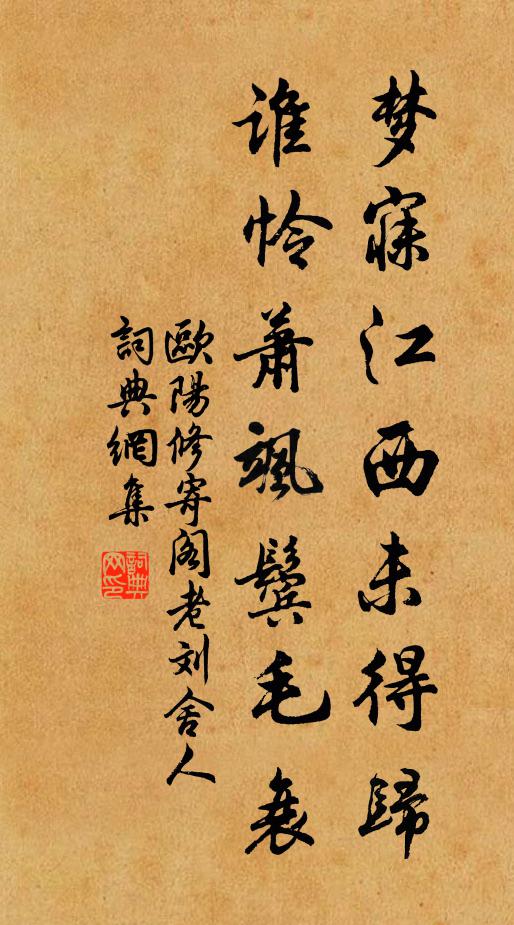 梦寐江西未得歸
谁怜蕭颯鬓毛衰
歐陽修寄阁老刘舍人
詞典網集
詞典
网印